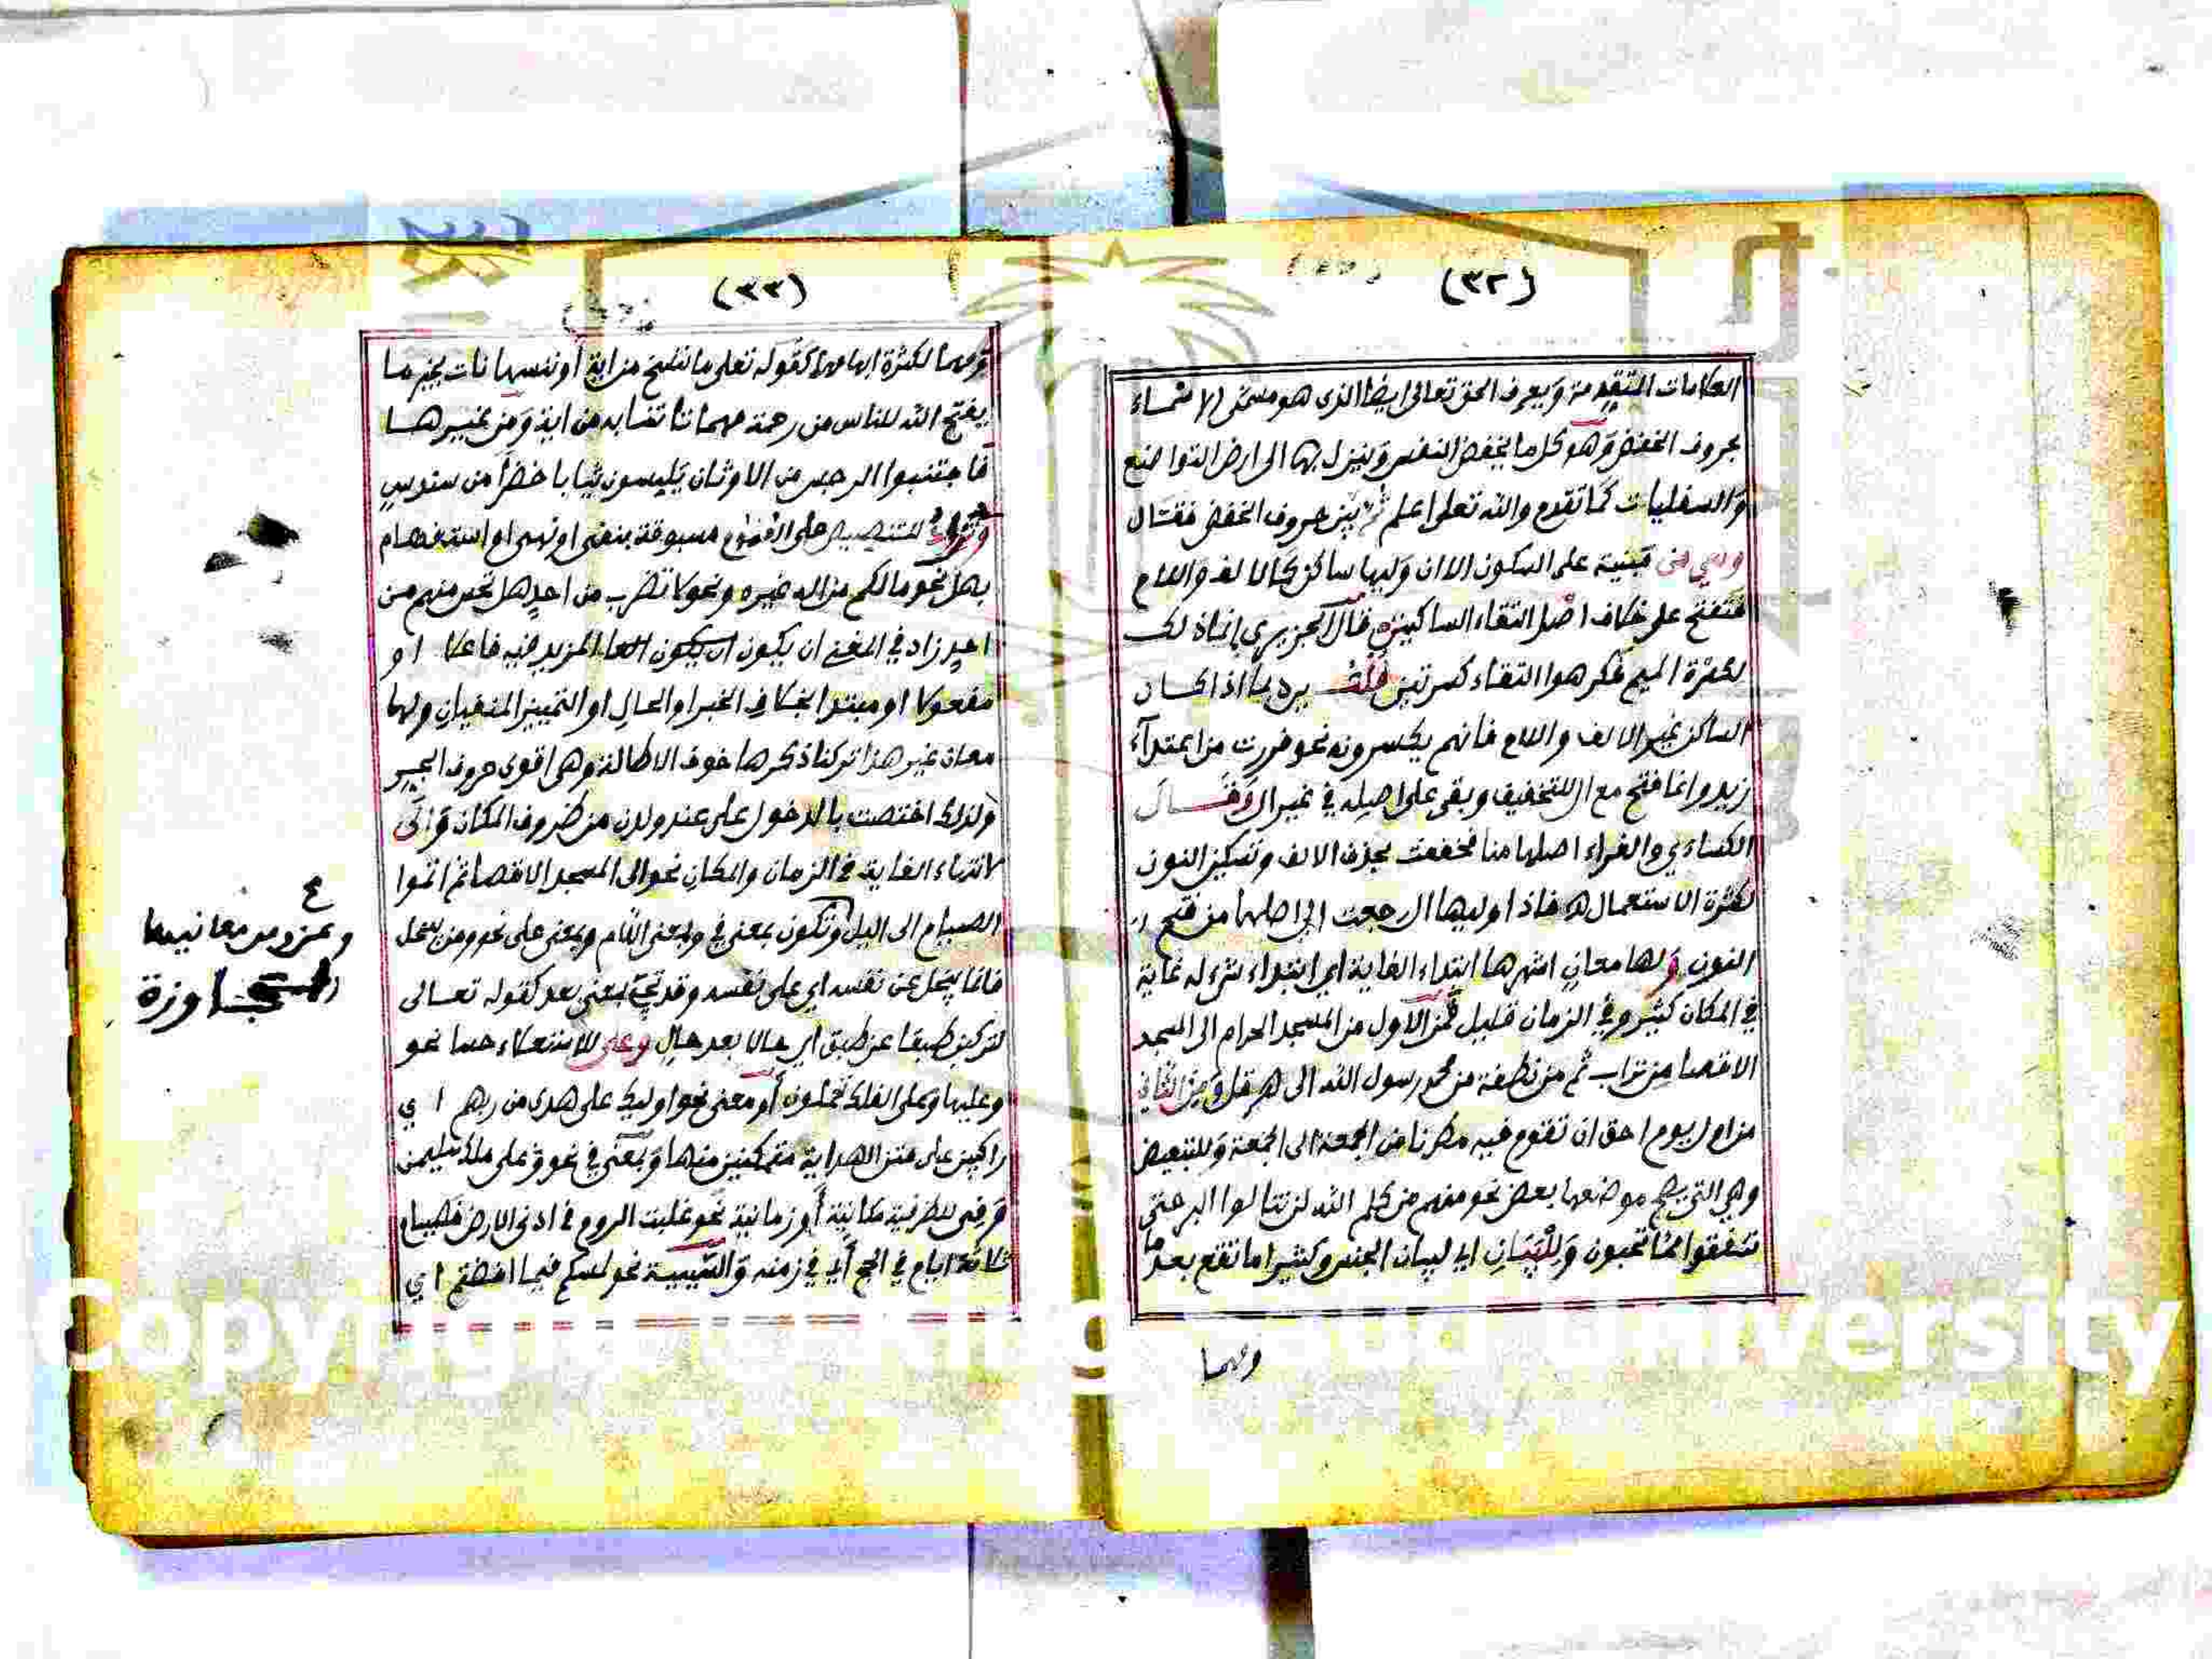 (٣٢)
العلامات المتقدمة ويعرف الحق تعالى ايضا الذى هو مسمى الاسماء
بحروف الخفض وهو كل ما يخفض النفس وينزل بها الى ارض التواضع
والسفليات كما تقدم والله تعلى اعلم ثم بين حروف الخفض فقال
وهي من مبنية على السكون الا ان وليها ساكن كالالف واللام
فتفتح على خلاف اصل التقاء الساكنين قال الجزيري انما ذلك
لكثرة الميم فكرهوا التقاء كسرتين قلت يرد بما اذا كان
الساكن غير الالف واللام فانهم يكسرونه نحو فررت من اعتدآء
زيد وانما فتح مع ال للتخفيف وبقى على اصله في غير ال وقال
الكساءي والفراء اصلها منا فخففت بحذف الالف وتسكين النون
لكثرة الاستعمال فاذا وليها ال رجعت الى اصلها من فتح
النون ولها معان اشهرها ابتداء الغاية اي ابتداء شيء له غاية
في المكان كثير وفي الزمان قليل فمن الاول من المسجد الحرام الى المسجد
الاقصا من تراب ثم من نطفة من محمد رسول الله الى هرقل ومن الثاني
من اول يوم احق ان تقوم فيه مطرنا من الجمعة الى الجمعة وللتبعيض
وهي التي يصح موضعها بعض نحو منهم من كلم الله لن تنالوا البر حتى
تنفقوا مما تحبون وللبيان اي لبيان الجنس وكثيرا ما تقع بعد ما
ومهما
(٣٣)
ومهما لكثرة ابهامهما كقوله تعلى ما ننسخ من اية أو ننسها نات بخير ما
يفتح الله للناس من رحمة مهما تاتنا به من اية ومن غيرها
فاجتنبوا الرجس من الاوثان يلبسون ثيابا خضرا من سندس
للتنصيص على العموم مسبوقة بنفي او نهى او استفهام
بهل نحو ما لكم من اله غيره ونحو لا تضرب من احد هل تحس منهم من
احد زاد في المغني ان يكون ان يكون المزيد فيه فاعلا او
مفعولا او مبتدا بخلاف الخبر او الحال او التمييز المنفيان ولها
معان غير هذا تركنا ذكرها خوف الاطالة وهى اقوى حروف الجر
ولذلك اختصت بالدخول على عند ولدن من ظروف المكان والى
لانتهاء الغاية في الزمان والمكان نحو الى المسجد الاقصا ثم اتموا
الصيام الى اليل وتكون بمعنى في وبمعنى اللام وبمعنى على نحو ومن يبخل
فانما يبخل عن نفسه اي على نفسه وقد تجئ بمعنى بعد كقوله تعالى
لتركبن طبقا عن طبق اي حالا بعد حال وعلى للاستعلاء حسا نحو
وعليها وعلى الفلك تحملون أو معنى نحو اوليك على هدى من ربهم اي
راكبين على متن الهداية متمكنين منها وبمعنى في نحو على ملك سليمن
وفي للظرفية مكانية أو زمانية نحو غلبت الروم في ادنى الارض فصيام
ثلاثة ايام في الحج أي في زمنه والسببية نحو لمسكم فيما افضتم اي
وعن ومن معانيها
المجاوزة
Copyright © King Saud University